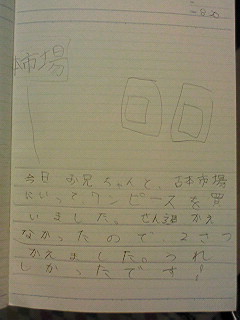 8/20
市場
今日お兄ちゃんと、古本市場
にいってワンピースを買
いました。せん週かえ
なかったので2さつ
かえました。うれ
しかったです!